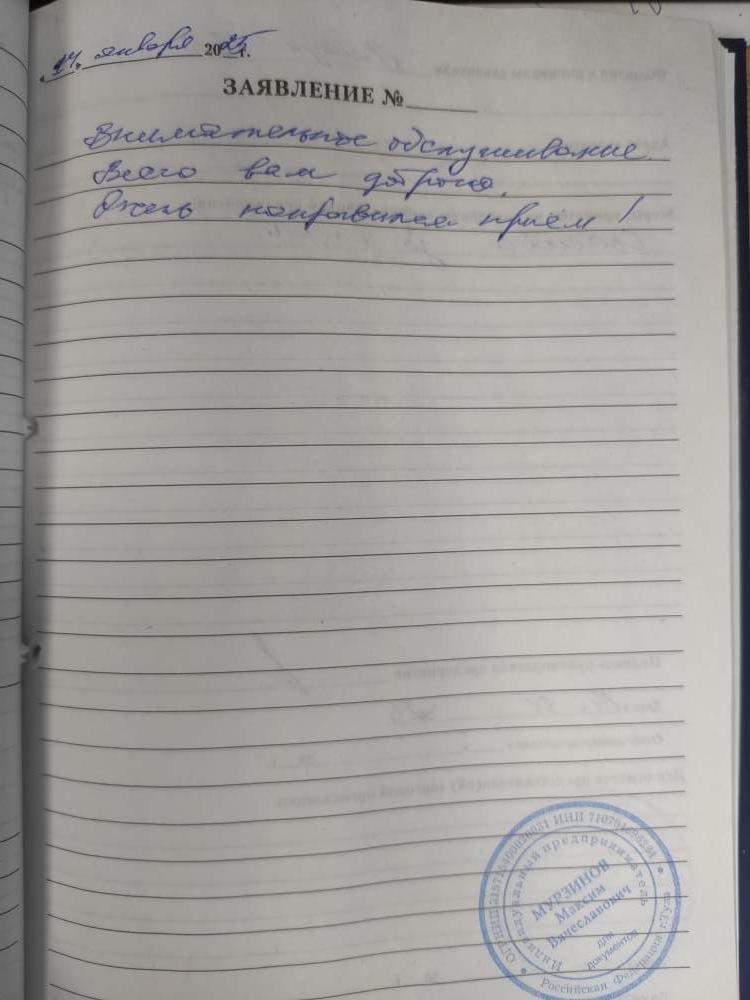 "24" января 2025г.
ЗАЯВЛЕНИЕ №
Внимательное обслуживание.
Всего вам доброго.
Очень понравился прием!
Индивидуальный предприниматель
МУРЗИНОВ
Максим
Вячеславович
для
документов
Российская Федерация